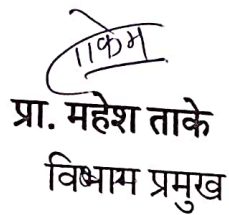 प्रा. महेश ताके
विभाग प्रमुख